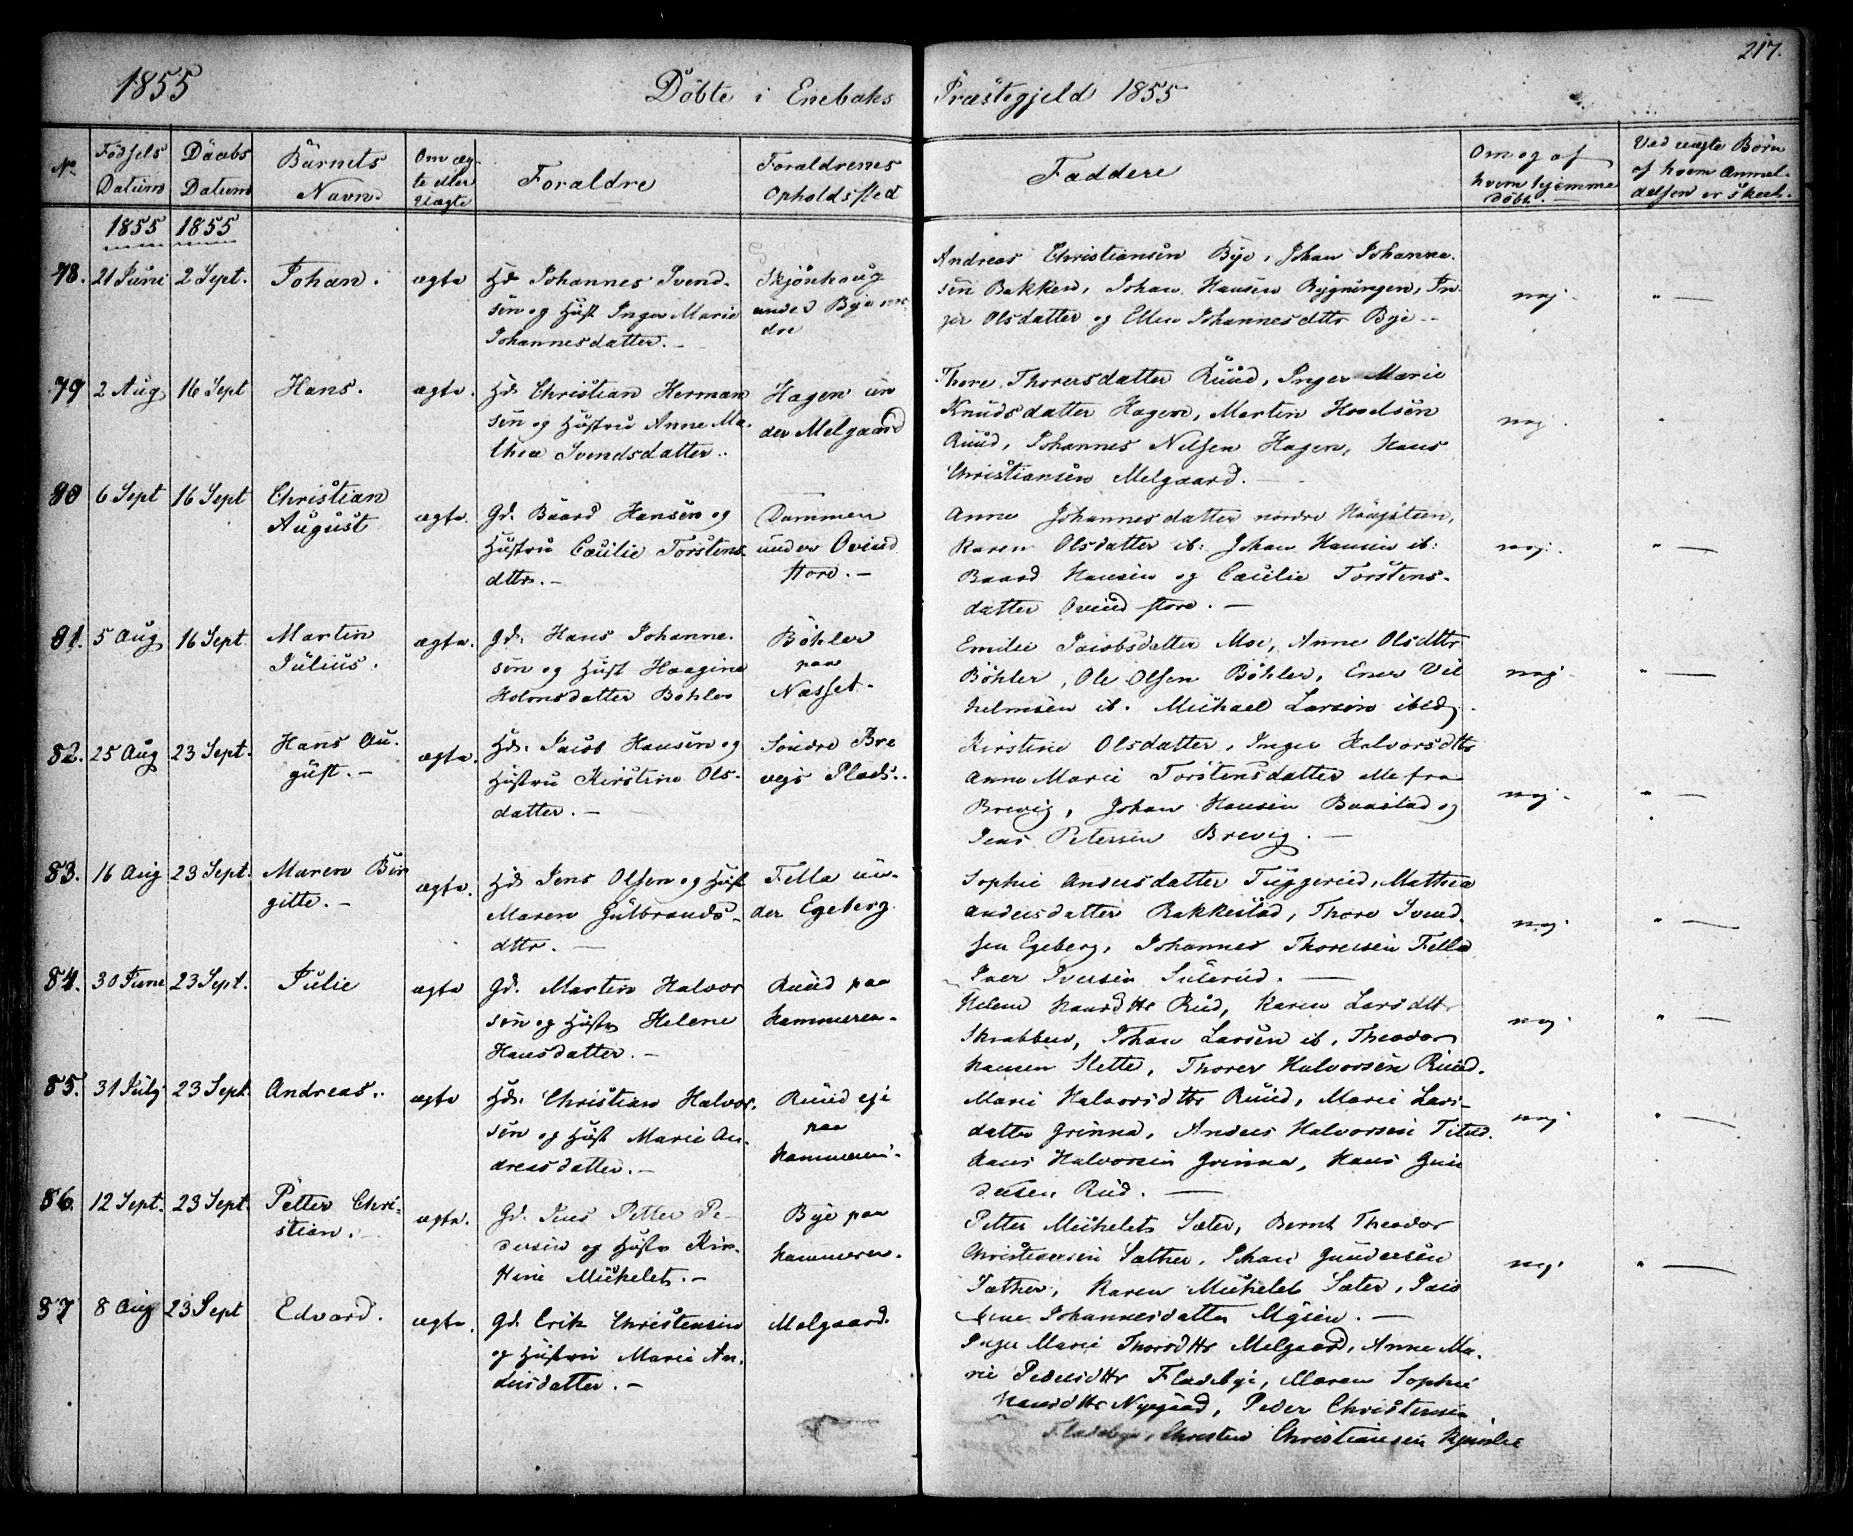 217.
1855 Döbte i Enebaks Præstegjeld 1855
No Födsels Datum Daabs Datum Barnets Navn. Om æg- te eller Uægte Foraldre Foraldrenes Opholdssted Faddere Om og af hvem hjemme döbt. Ved uægte Börn af hvem Anmel- delsen er skeet.
1855 1855
78. 21 Juni 2 Sept. Johan. ægte Hd Johannes Svend-
sen og Hust Inger Marie
Johannesdatter.
Skjönhaug
under Bye nor
dre
Andreas Christiansen Bye, Johan Johanne-
sen Bakken, Johan Hansen Bygningen, In
ger Olsdatter og Ellen Johannesdttr Bye
nej
79 2 Aug 16 Sept Hans. ægte. Hd Christian Herman
sen og Hustru Anne Ma-
thea Svendsdatter.
Hagen un
der Melgaard
Thore Thorersdatter Ruud, Inger Marie
Knudsdatter Hagen, Martin
Ruud, Johannes Nilsen Hagen, Hans
Christiansen Melgaard.
nej
80 6 Sept 16 Sept Christian
August ægte. Gd. Baard Hansen og
Hustru Cæcilie Torstens-
dttr.
Dammen
under Ovind
store.
Anne Johannesdatter nordre
Karen Olsdatter ib: Johan Hansen ib:
Baard Hansen og Cæcilie Torstens-
datter Ovind store.
nej
81. 5 Aug 16 Sept Martin
Julius. ægte. Gd. Hans Johanne-
sen og Hust Haagine
Holmsdatter Böhler
Böhler
paa
Næsset.
Emilie Jacobsdatter Moe, Anne Olsdttr
Böhler, Ole Olsen Böhler, Ener Vil
helmsen ib. Michael Larsen ibid
nej
82. 25 Aug 23 Sept. Hans Au-
gust. ægte. Hd. Jacob Hansen og
Hustru Kirstine Ols-
datter.
Söndre Bre
vigs Plads.
Kirstine Olsdatter, Inger Halvorsdttr
Anne Marie Torstensdatter alle fra
Brevig, Johan Hansen Baastad og
Jens Petersen Brevig.
nej
83. 16 Aug 23 Sept. Maren Bir
gitte. ægte. Hd Jens Olsen og Hust
Maren Gulbrands-
dttr.
Fella un-
der Egeberg
Sophie Andersdatter Tuggerud, Mathea
Andersdatter Rakkestad, Thore Svend-
sen Egeberg, Johannes Thoresen Fella
Iver Iversen
nej
84. 30 Juni 23 Sept. Julie ægte Gd. Martin Halvor
sen og Hustr Helene
Hansdatter.
Ruud paa
Hammeren.
Helene Hansdttr Rud, Karen Larsdttr
Skrabben, Johan Larsen ib, Theodor
Hansen Slette, Thorer Halvorsen Ruud.
nej
85. 31 July 23 Sept. Andreas. ægte Hd. Christian Halvor-
sen og Hust Marie An-
dreasdatter.
Ruud eje
paa
Hammeren.
Marie Halvorsdttr Ruud, Marie Lars-
datter Grinna, Anders Halvorsen
Hans Halvorsen Grinna, Hans Gun
dersen Rud.
nej
86. 12 Sept. 23 Sept. Petter Chri-
stian. ægte. Gd. Jens Petter Pe-
dersen og Hustr Kir-
stine Michelet.
Bye paa
Hammeren.
Petter Michelet Sæter, Bernt Theodor
Christiansen Sæther, Johan Gundersen
Sæther, Karen Michelet Sæter,
Johannesdatter
nej
87 8 Aug 23 Sept Edvard. ægte. Gd. Erik Christensen
og Hustru Marie An-
dersdatter.
Melgaard.
Inger Marie Thorsdttr Melgaard, Anne Ma-
rie Pedersdttr Fladebye, Maren Sophie
Hansdttr Nygaard, Peder Christensen
Fladebye, Christen Christiansen